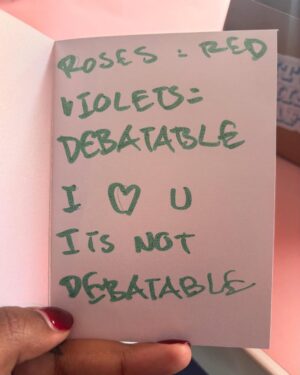 ROSES = RED
VIOLETS =
DEBATABLE
I ♡ U
ITS NOT
DEBATABLE